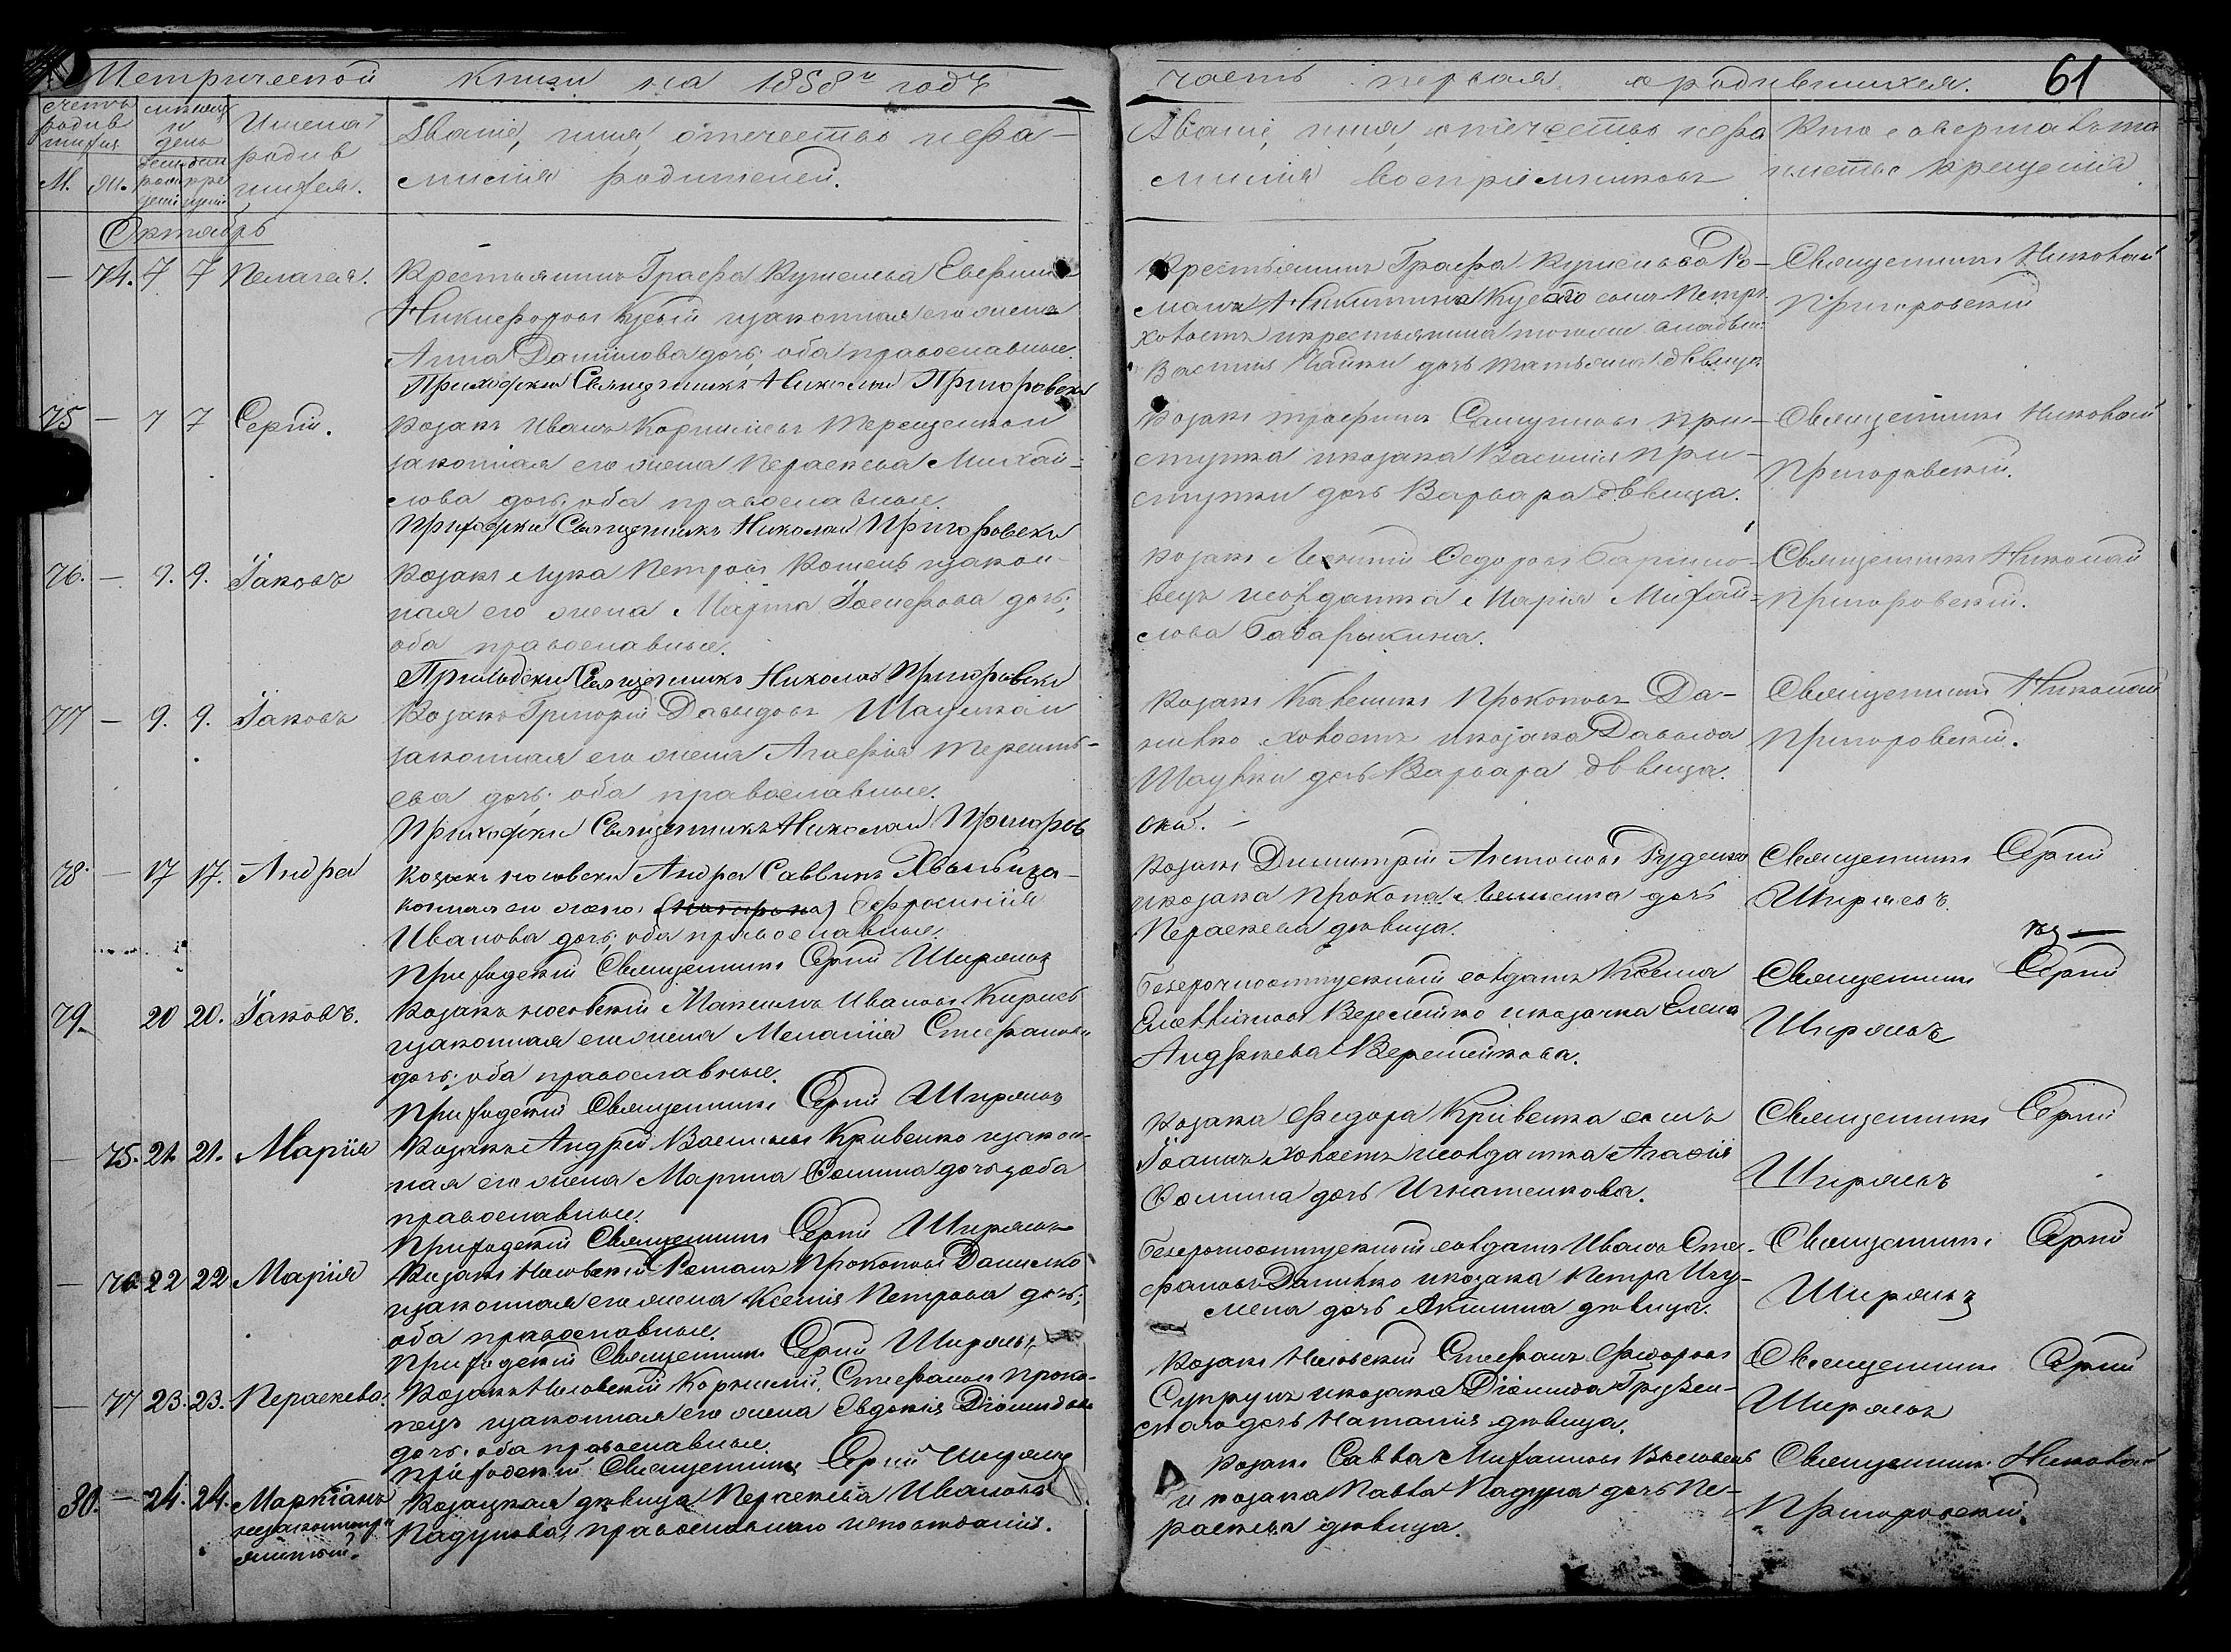 Метрической книги на 1858й годъ
часть первая о родившихся. 61
Счетъ родившихся
М. Ж.
месяцъ и день
рожденія крещенія
Имена родившихся.
Званіе, имя, отечество и фа-
милія родителей.
Званіе, имя, отечество и фа
милія воспріемниковъ
Кто совершалъ та
инство крещенія
Октябрь
— 74. 7 7 Пелагея.
Крестьянинъ Графа Кушелева Евфимъ
Никифоровъ и законная его жена
Анна Даніилова дочь; оба православные.
Приходскій Священникъ Николай Пригоровскі
Крестьянинъ Графа Кушелева Ро-
манъ Никитинъ сынъ Петръ
холостъ и крестьянина тогоже владѣн:
Василія Чайки дочь Татьяна дѣвица
Священникъ Николай
Пригоровскій
75 — 7 7 Сергій.
Козакъ Иванъ Корниліевъ Терещенко и
законная его жена Параскева Михай-
лова дочь; оба православные.
Приходскій Священникъ Николай Пригоровскі
Козакъ Трофимъ Самуиловъ При-
ступка и козака Василія При-
ступки дочь Варвара дѣвица.
Священникъ Николай
Пригоровскій.
76. — 9. 9. Іаковъ
Козакъ Лука Петровъ Кошель и закон-
ная его жена Марта Іосифова дочь;
оба православные.
Приходскій Священникъ Николай Пригоровскі
Козакъ Ѳедоровъ
вецъ и солдатка Марія Михай-
лова Бабарыкина.
Священникъ Николай
Пригоровскій.
77 — 9. 9. Іаковъ
Козакъ Григорій Давыдовъ Шаулко и
законная его жена Агафія Теренть-
ева дочь; оба православные.
Приходскій Священникъ Николай Пригоров
скі. —
Козакъ Прокоповъ Да-
нилко холостъ и козака Давыда
Шаулки дочь Варвара дѣвица.
Священникъ Николай
Пригоровскій.
78. — 17 17. Андрей
Козакъ носовскій Андрей Саввинъ и за-
конная его жена Ефросинія
Иванова дочь; оба православные.
Приходскій Священникъ Сергій Ширяевъ
Козакъ Димитрій Антоновъ Руденко
и козака Прокопа дочь
Параскева дѣвица.
Священникъ Сергій
Ширяевъ.
79. 20 20. Іаковъ.
Козакъ носовскій Максимъ Ивановъ Кирись
и законная его жена Меланія Стефанова
дочь; оба православные.
Приходскій Священникъ Сергій Ширяевъ
Безсрочноотпускный солдатъ Косма
Веремейко и козачка Елена
Андреева Веремейкова.
Священникъ Сергій
Ширяевъ
— 75. 21. 21. Марія
Козакъ Андрей Васильевъ Кривенко и закон-
ная его жена Марина Ѳомина дочь; оба
православные.
Приходскій Священникъ Сергій Ширяевъ
Козака Ѳедора Кривенка сынъ
Іоаннъ холостъ и солдатка Агафія
Ѳомина дочь Игнатенкова.
Священникъ Сергій
Ширяевъ
— 76. 22 22 Марія
Козакъ Носовскій Романъ Прокоповъ Данилко
и законная его жена Ксенія Петрова дочь;
оба православные.
Приходскій Священникъ Сергій Ширяевъ
Безсрочноотпускный солдатъ Иванъ Сте-
фановъ Данилко и козака Петра Игу-
мена дочь Акилина дѣвица.
Священникъ Сергій
Ширяевъ
— 77 23. 23. Параскева.
Козакъ Носовскій Корнилій Стефановъ Проко-
пецъ и законная его жена Евдокія Діомидова
дочь; оба православные.
Приходскій Священникъ Сергій Ширяевъ
Козакъ Носовскій Стефанъ Ѳедоровъ
Супрунъ и козака Діомида
дочь Наталія дѣвица.
Священникъ Сергій
Ширяевъ
80. — 24. 24. Маркіанъ
незаконнорожденный.
Козацкая дѣвица Параскева Иванова
Падунова, православнаго исповѣданія.
Козакъ Савва Михайловъ
и козака Павла Падуна дочь Па-
раскева дѣвица.
Священникъ Николай
Пригоровскій.